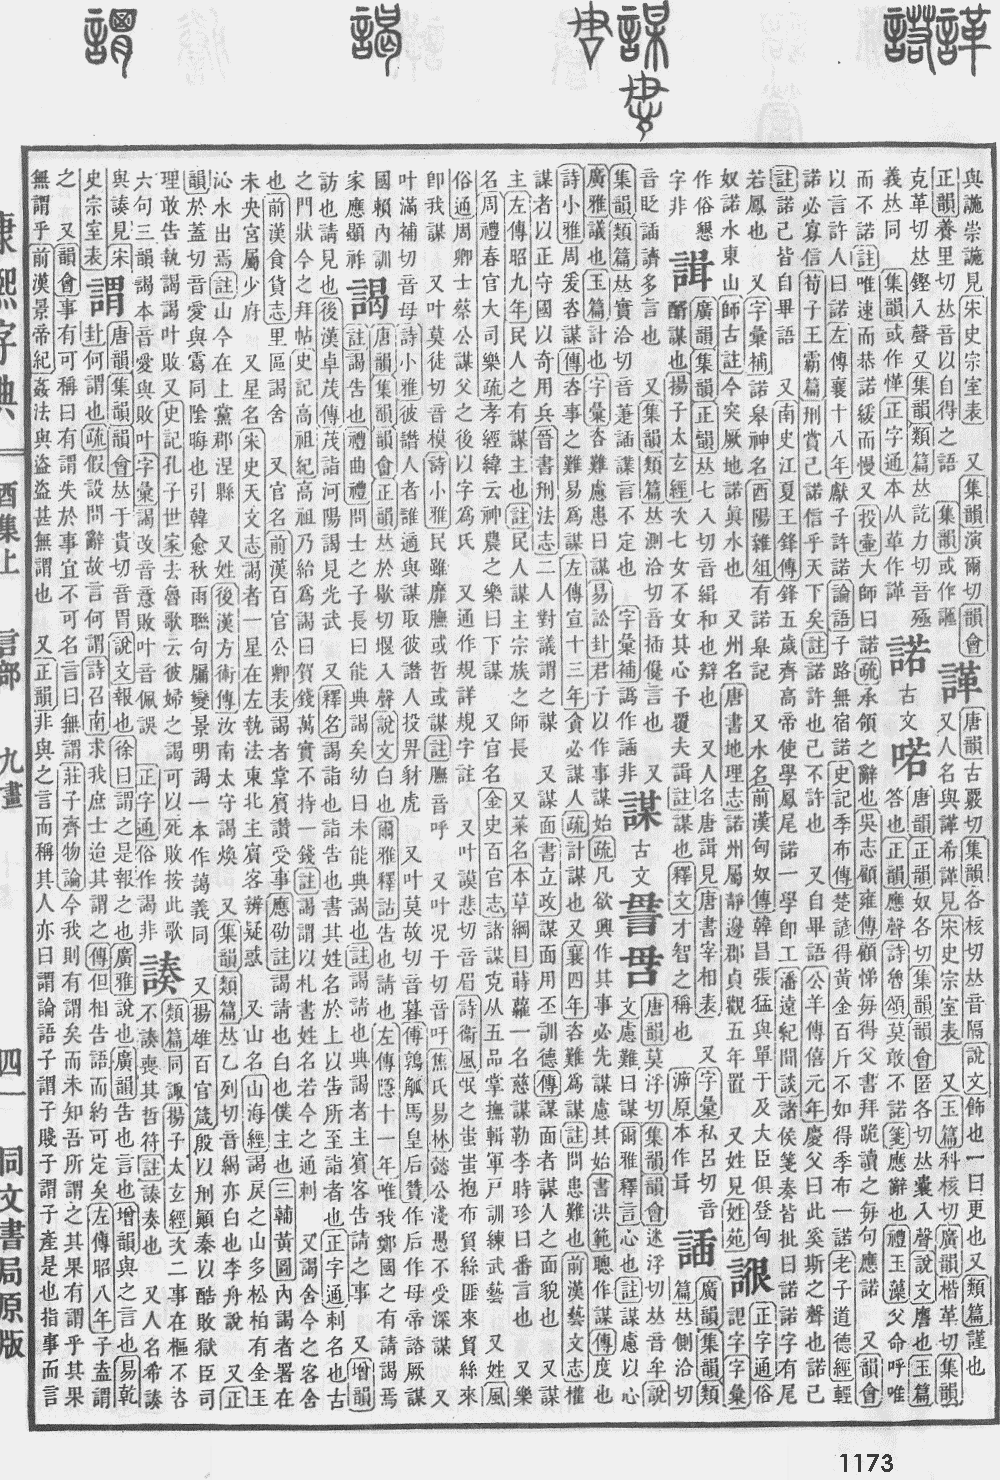 與諟崇諟見宋史宗室表 又集韻演爾切韻會
正韻養里切𠀤音以自得之語 集韻或作
諽
唐韻古覈切集韻各核切𠀤音隔說文飾也一曰更也又類篇謹也
又人名與諽希諽見宋史宗室表 又玉篇科核切廣韻楷革切集韻
克革切𠀤鏗入聲又集韻類篇𠀤訖力切音殛
義𠀤同 集韻或作愅正字通本从革作諽
諾 古文 喏
唐韻正韻奴各切集韻韻會匿各切𠀤囊入聲說文譍也玉篇
答也正韻應聲詩魯頌莫敢不諾箋應辭也禮玉藻父命呼唯
而不諾註唯速而恭諾緩而慢又投壷大師曰諾疏承領之辭也吳志顧雍傳顧悌每得父書拜跪讀之每句應諾 又韻會
以言許人曰諾左傳襄十八年獻子許諾論語子路無宿諾史記季布傳楚諺得黃金百斤不如得季布一諾老子道德經輕
諾必寡信荀子王霸篇刑賞己諾信乎天下矣註諾許也己不許也 又自畢語公羊傳僖元年慶父曰此奚斯之聲也諾己
註諾己皆自畢語 又南史江夏王鋒傳鋒五歲齊高帝使學鳳尾諾一學卽工潘遠紀聞談諸侯箋奏皆批曰諾諾字有尾
若鳳也 又字彙補諾皐神名酉陽雜俎有諾皐記 又水名前漢匈奴傳韓昌張猛與單于及大臣俱登匈
奴諾水東山師古註今突厥地諾眞水也 又州名唐書地理志諾州屬靜邊郡貞觀五年置 又姓見姓苑
正字通俗
字字彙
作俗懇
字非
諿
廣韻集韻正韻𠀤七入切音緝和也辯也 又人名唐諿見唐書宰相表 又字彙私呂切音
醑謀也揚子太玄經次七女不女其心予覆夫諿註謀也釋文才智之稱也
廣韻集韻類
篇𠀤側洽切
音眨 諵多言也 又集韻類篇𠀤測洽切音插儳言也 又
集韻類篇𠀤實洽切音萐 言不定也 字彙補譌作 非
謀 古文
唐韻莫浮切集韻韻會迷浮切𠀤音牟說
文慮難曰謀爾雅釋言心也註謀慮以心
廣雅議也玉篇計也字彙咨難慮患曰謀易訟卦君子以作事謀始疏凡欲興作其事必先謀慮其始書洪範聰作謀傳度也
詩小雅周爰咨謀傳咨事之難易爲謀左傳宣十三年貪必謀人疏計謀也又襄四年咨難爲謀註問患難也前漢藝文志權
謀者以正守國以奇用兵晉書刑法志二人對議謂之謀 又謀面書立政謀面用丕訓德傳謀面者謀人之面貌也 又謀
主左傳昭九年民人之有謀主也註民人謀主宗族之師長 又菜名本草綱目蒔蘿一名慈謀勒李時珍曰番言也 又樂
名周禮春官大司樂疏孝經緯云神農之樂曰下謀 又官名金史百官志諸謀克从五品掌撫輯軍戸訓練武藝 又姓風
俗通周卿士蔡公謀父之後以字爲氏 又通作規詳規字註 又叶謨悲切音眉詩衞風氓之蚩蚩抱布貿絲匪來貿絲來
卽我謀 又叶莫徒切音模詩小雅民雖靡膴或哲或謀註膴音呼 又叶况于切音吁焦氏易林懿公淺愚不受深謀 又
叶滿補切音母詩小雅彼譖人者誰適與謀取彼譖人投畀豺虎 又叶莫故切音暮傅鶉觚馬皇后贊作后作母帝諮厥謀
國賴內訓
家應顯祚
謁
唐韻集韻韻會正韻𠀤於歇切堰入聲說文白也爾雅釋詁告也請也左傳隱十一年唯我鄭國之有請謁焉
註謁告也禮曲禮問士之子長曰能典謁矣幼曰未能典謁也註謁請也典謁者主賓客告請之事 又增韻
訪也請見也後漢卓茂傳茂詣河陽謁見光武 又釋名謁詣也詣告也書其姓名於上以告所至詣者也正字通刺名也古
之門狀今之拜帖史記高祖紀高祖乃紿爲謁曰賀錢萬實不持一錢註謁謂以札書姓名若今之通刺 又謁舍今之客舍
也前漢食貨志里區謁舍 又官名前漢百官公卿表謁者掌賓讚受事應劭註謁請也白也僕主也三輔黃圖內謁者署在
未央宮屬少府 又星名宋史天文志謁者一星在左執法東北主賓客辨疑惑 又山名山海經謁戾之山多松柏有金玉
沁水出焉註山今在上黨郡涅縣 又姓後漢方術傳汝南太守謁煥 又集韻類篇𠀤乙列切音緆亦白也李舟說 又正
韻於蓋切音愛與靄同陰晦也引韓愈秋雨聯句屬變景明謁一本作藹義同 又揚雄百官箴殷以刑顚秦以酷敗獄臣司
理敢告執謁謁叶敗又史記孔子世家去魯歌云彼婦之謁可以死敗按此歌
六句三韻謁本音愛與敗叶字彙謁改音意敗叶音佩誤 正字通俗作謁非
諫
類篇同諏揚子太玄經次二事在樞不咨
不諫喪其哲符註諫奏也 又人名希諫
與諫見宋
史宗室表
謂
唐韻集韻韻會𠀤于貴切音胃說文報也徐曰謂之是報之也廣雅說也廣韻告也言也增韻與之言也易乾
卦何謂也疏假設問辭故言何謂詩召南求我庶士迨其謂之傳但相告語而約可定矣左傳昭八年子盍謂
之 又韻會事有可稱曰有謂失於事宜不可名言曰無謂莊子齊物論今我則有謂矣而未知吾所謂之其果有謂乎其果
無謂乎前漢景帝紀姦法與盜盜甚無謂也 又正韻非與之言而稱其人亦曰謂論語子謂子賤子謂子產是也指事而言
康熙字典 酉集上 言部 九畫 四一 同文書局原版
1173